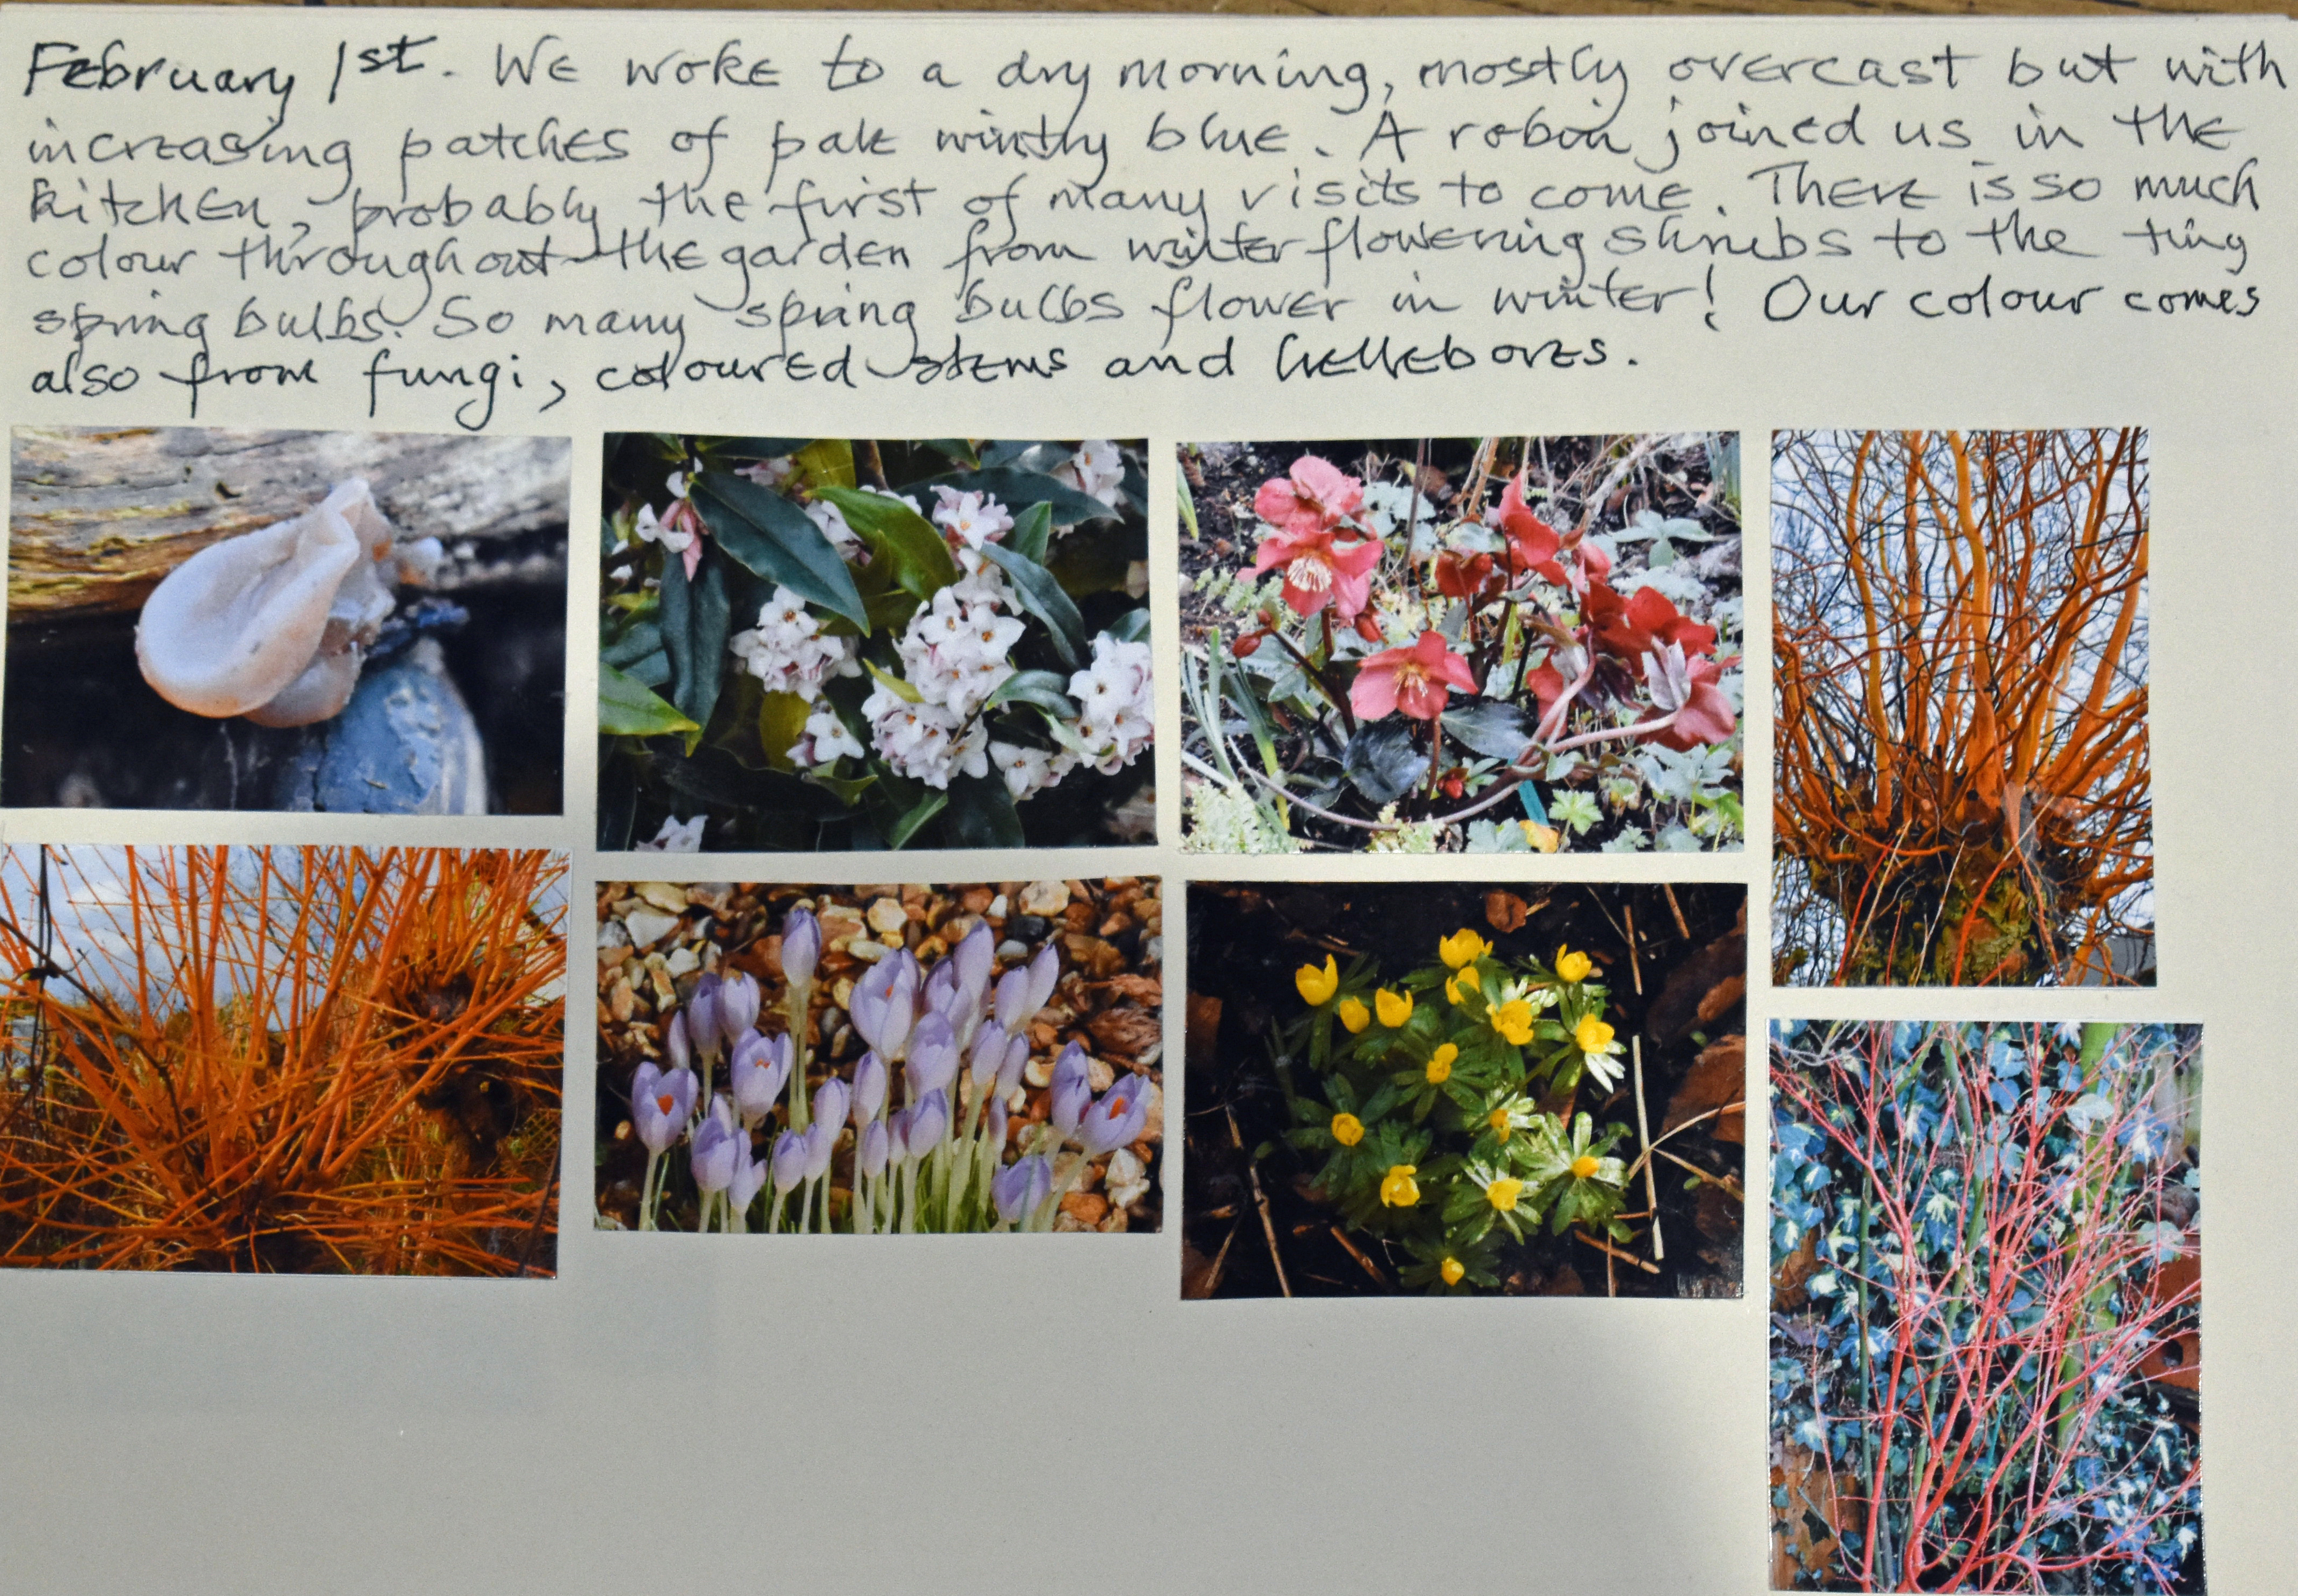 February 1st. We woke to a dry morning, mostly overcast but with
increasing patches of pale wintry blue. A robin joined us in the
kitchen, probably the first of many visits to come. There is so much
colour throughout the garden from winter flowering shrubs to the tiny
spring bulbs. So many spring bulbs flower in winter! Our colour comes
also from fungi, coloured stems and hellebores.